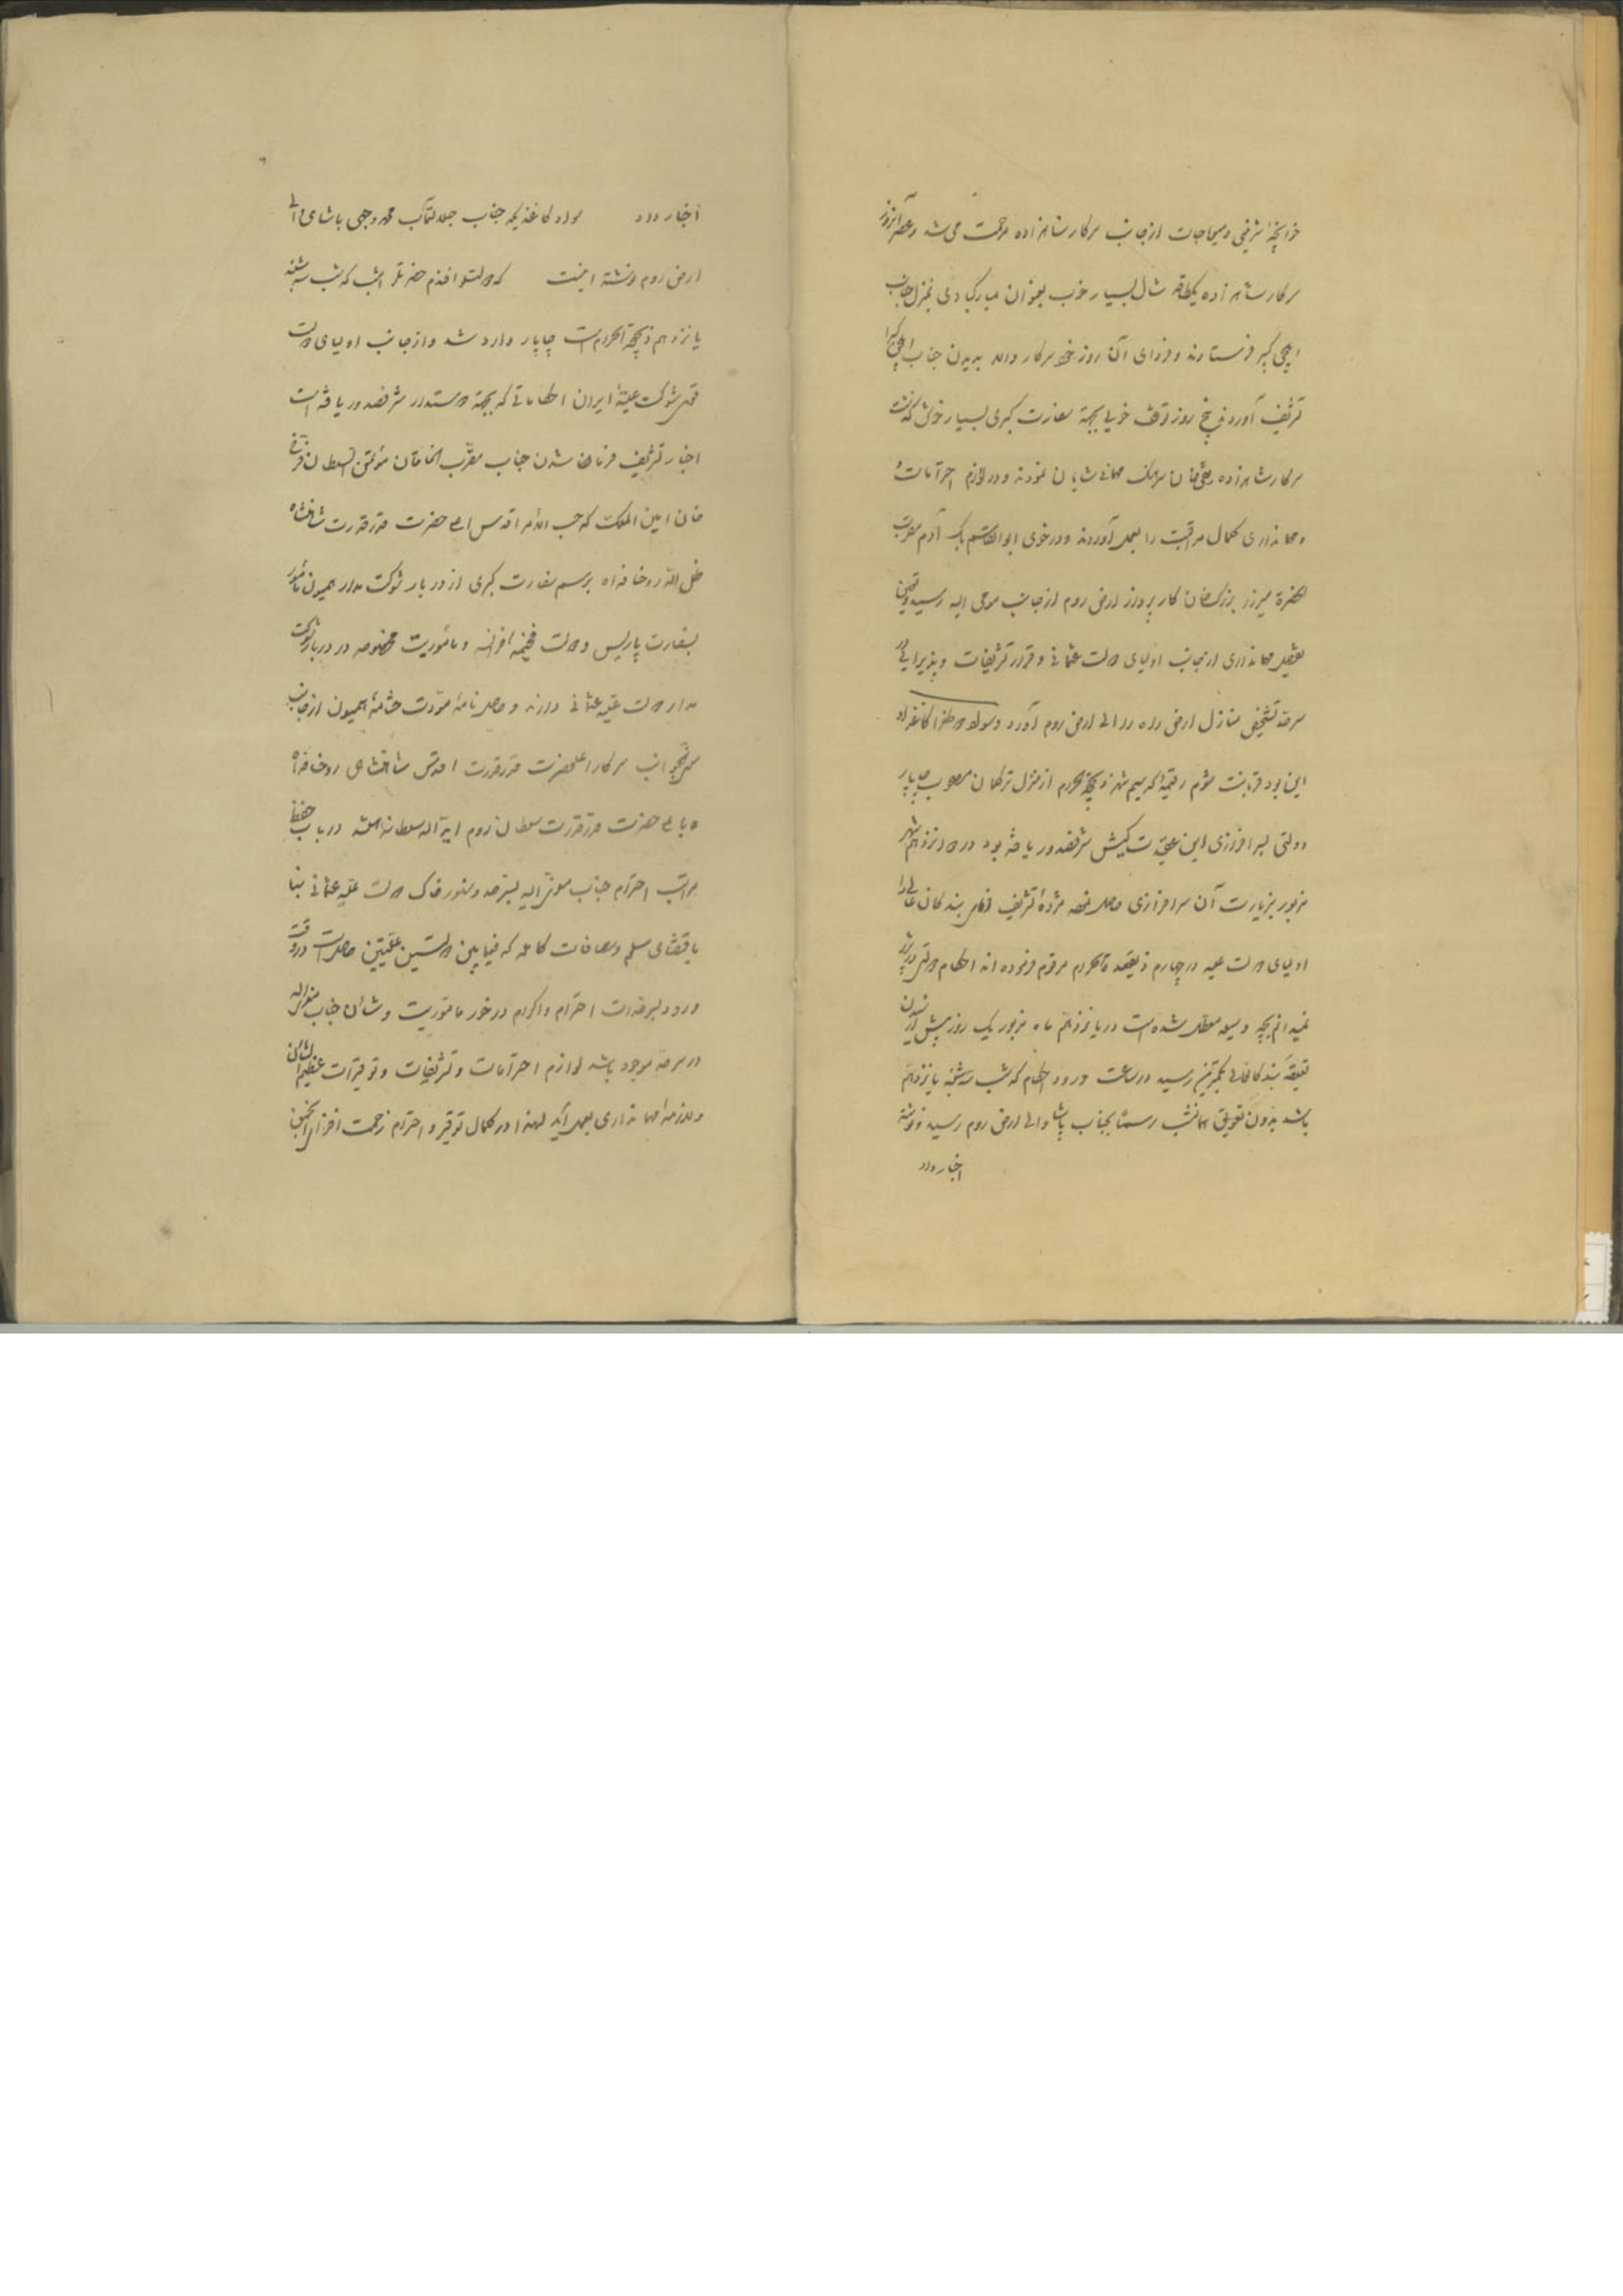 خوانچهٔ شرینی و میجات از جانب سرکار شاهزاده مرحمت می شد و عصر آنروز
سرکار شاهزاده یکطاقه شال بسیار خوب بعنوان مبارکبادی بمنزل جناب
ایلچی کبیر فرستادند و فردای آن روز خود سرکار والد بدیدن جناب ایلچی کبیر
تشریف آوردند پنج روز توقف خوی بجهة سفارت کبری بسیار خوش گذشت
سرکار شاهزاده خان سرهنگ مهمانی شایان نمودند و در لوازم احترامات
و مهمانداری کمال مراقبت را بعمل آوردند و در خوی ابوالقاسم بیک آدم مقرب
الحضرة میرزا بزرگ خان کارپرداز ارض روم از جانب مومی الیه رسید و تعیین
مهمانداری از جانب اولیای دولت عثمانی و قرار تشریفات و پذیرایی در
سرحد تشخیص منازل ارض راه را الی ارض روم آورد و سواد کاغذ او
این بود قربانت شوم رقیمهٔ که سیم شهر ذیحجة الحرام از منزل ترکمان مصحوب چاپار
دولتی بسرافرازی این عقیدت کیش شرفصدور یافته بود در دوازدهم شهر
مزبور بزیارت آن سرافرازی حاصل مژدهٔ تشریف بندکان عالی را
اولیای دولت علیه در چهارم ذیقعدة الحرام مرقوم فرموده اند احکام دولتی در راه
نمیدانم بچه وسیله معطل شده است در یازدهم ماه مزبور یک روز پیش از رسیدن
تعلیقهٔ بندکانعالی بکمترین رسید در ساعت ورود احکام که شب سه شنبه یازدهم
باشد بدون تعویق همانشب رسماً بجناب پاشا والی ارض روم رسید و نوشته
اخبار داد
اخبار داد سواد کاغذیکه جناب جلالتمآب محمد وجیهی پاشای والی
ارض روم نوشته اینست که دولتلو افندم حضرتلر امشب که شب سه شنبه
یازدهم ذیحجة الحرام است چاپار وارد شد و از جانب اولیای دولت
قوی شوکت علیهٔ ایران احکاماتی که بجهة دوستدار شرفصدور یافته است
اخبار تشریف فرما شدن جناب مقرب الخاقان مؤتمن السلطان فرخ
خان امین الملک که حسب الامر اقدس اعلی حضرت قدرقدرت شاهنشاه
ظل الله روحنا فداه برسم سفارت کبری از دربار شوکت مدار همیون مأمور
بسفارت پاریس دولت فخیمهٔ فرانسه و مأموریت مخصوصه در دربار شوکت
مدار دولت علیهٔ عثمانی دارند و حامل نامهٔ مودت ختامهٔ همیون از جانب
سرکار اعلیحضرت قدرقدرت اقدس شاهنشاهی روحنا فداه
باعلی حضرت قدرقدرت سلطان روم اید الله سلطانه در باب حفظ
مراتب احترام جناب معزی الیه بسرحد و سنور خاک دولت علیهٔ عثمانی بنا
باقتضای سلم و مصافات کامله که فیمابین دولتین علیتین حاصل است در وقت
ورود بسرحدات احترام و اکرام درخور مأموریت و شأن جناب معزی الیه
در سرحد موجود باشد لوازم احترامات و تشریفات و توقیرات عظیم الشأن
و لازمهٔ مهمانداری بعمل آید لهذا در کمال توقیر و احترام زحمت افزای